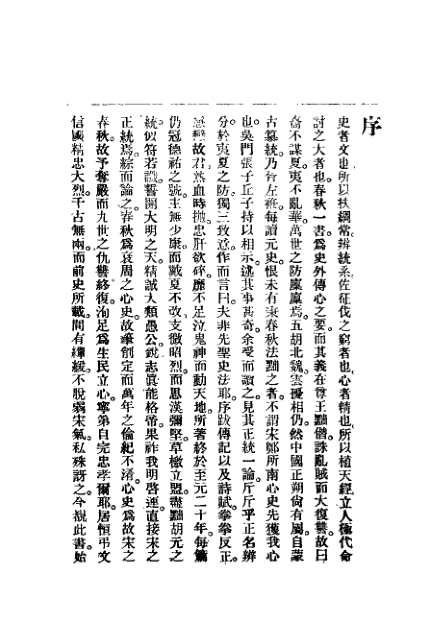 序
史者文也。所以扶綱常。辨統系。佐征伐之窮者也。心者精也。所以植天經。立人極。代命
討之大者也。春秋一書。爲史外傳心之要。而其義在尊王黜僭。誅亂賊而大復讐。故曰
裔不謀夏。夷不亂華。萬世之防凜凜焉。五胡北魏。雲擾相仍。然中國正朔尙有屬。自蒙
古簒統。乃胥左袵。每讀元史。恨未有秉春秋法黜之者。不謂宋鄭所南心史先獲我心
也。吳門張子丘子持以相示。述其事甚奇。余受而讀之。見其正統一論。斤斤乎正名辨
分。於夷夏之防。獨三致意。作而言曰。夫非先聖史法耶。序跋傳記以及詩賦。拳拳反正。
故君。熱血時抛。忠肝欲碎。靡不足泣鬼神而動天地。所著終於至元二十年。每篇
仍冠德祐之號。主無少康。而戴夏不改。支微昭烈。而思漢彌堅。草檄立盟。盡黜胡元之
統。似符若讖。誓開大明之天。精誠大類愚公。銳志眞能格帝。果祚我明啓運。直接宋之
正統焉。綜而論之。春秋爲衰周之心史。故筆創定而萬年之倫紀不淆。心史爲故宋之
春秋。故予奪嚴而九世之仇讐終復。洵足爲生民立心。寧第自完忠孝爾耶。居恒弔文
信國精忠大烈。千古無兩。而前史所載。間有繟緩。不脫弱宋氣。私殊訝之。今覩此書。始